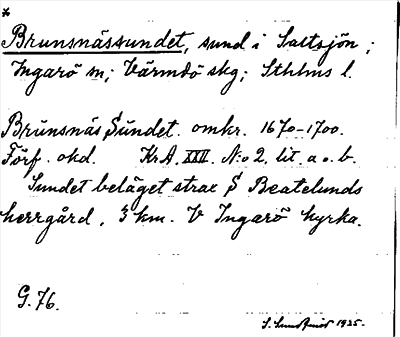 *
Brunsnässundet, sund i Saltsjön;
Ingarö sn; Värmdö skg; Sthlms l.
Brunsnäs Sundet. omkr. 1670-1700.
Förf. okd. KrA. XXII. No 2, lit. a o. b.
Sundet beläget strax S Beatelunds
herrgård, 3 km. V Ingarö kyrka.
G. 76.
S. 1935.